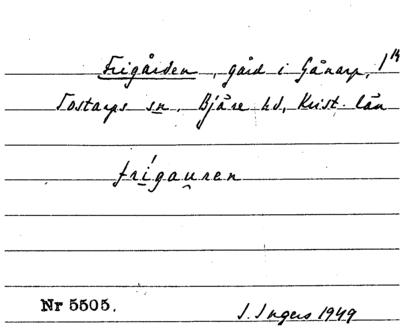 Frigården, gård i Gånarp, 1 14
Tostarps sn. Bjäre hd, Krist. län
frígau̯ren
Nr 5505. I. Ingers 1949